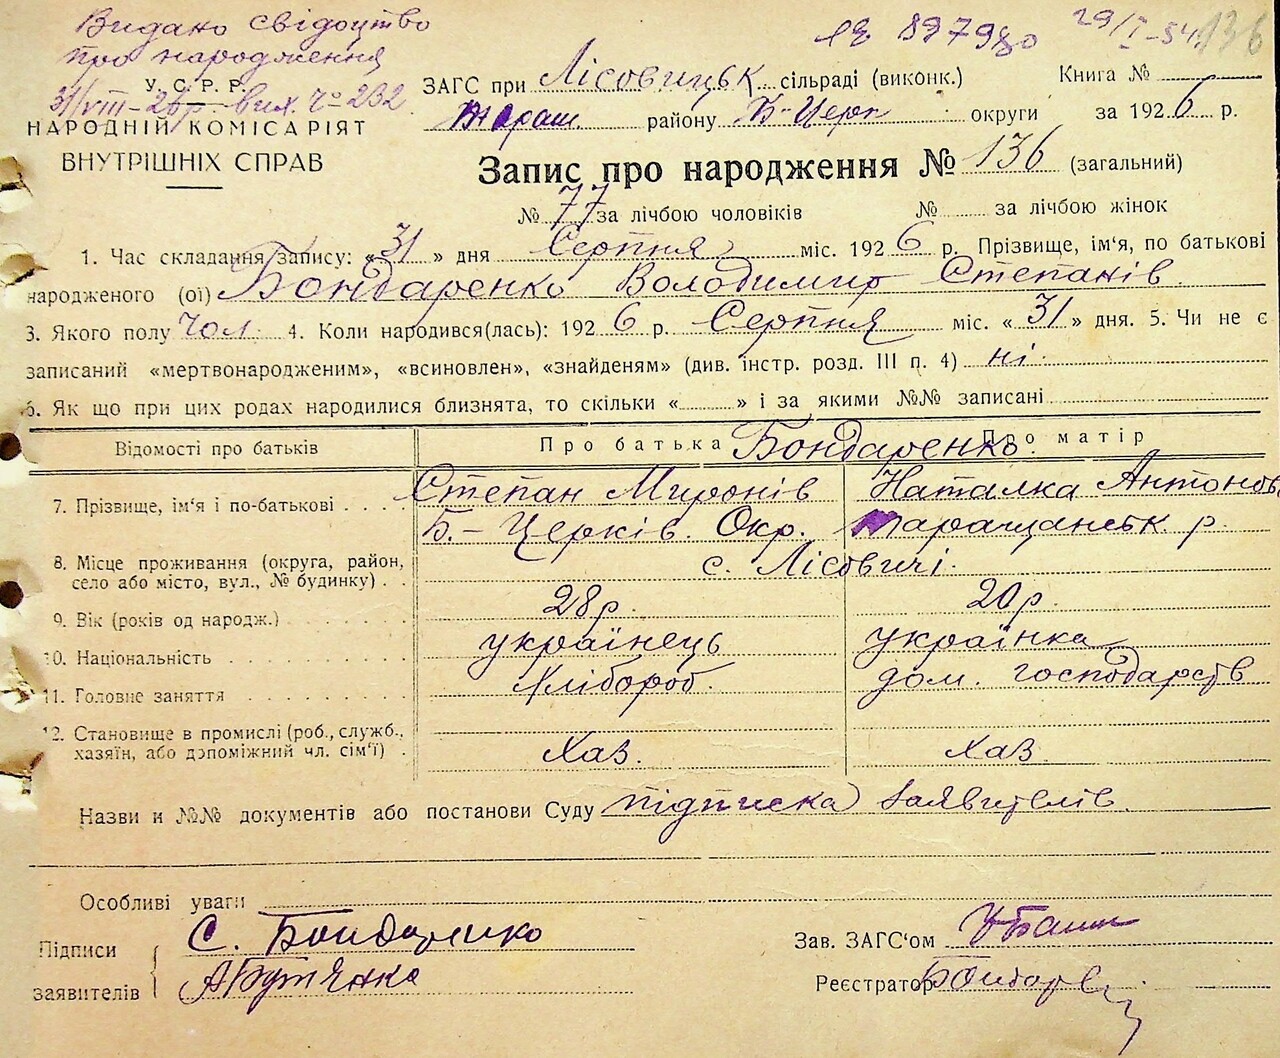 Видано свідоцтво
про народження
31/VIII-26р. вих. № 232
ЯЕ 897980 29/I-54. 136
У. С. Р. Р.
НАРОДНІЙ КОМІСАРІЯТ
ВНУТРІШНІХ СПРАВ
ЗАГС при Лісовицьк. сільраді (виконк.) Книга №
Тараш. району Б-Церк округи за 1926 р.
Запис про народження № 136 (загальний)
№ 77 за лічбою чоловіків № за лічбою жінок
1. Час складання запису: «31» дня Серпня міс. 1926 р. Прізвище, ім'я, по батькові
народженого (ої) Бондаренко Володимир Степанів
3. Якого полу чол. 4. Коли народився(лась): 1926 р. Серпня міс. «31» дня. 5. Чи не є
записаний «мертвонародженим», «всиновлен», «знайденям» (див. інстр. розд. III п. 4) ні.
6. Як що при цих родах народилися близнята, то скільки « » і за якими №№ записані
Відомості про батьків Про батька Про матір
Бондаренко
7. Прізвище, ім'я і по-батькові Степан Миронів Наталка Антонов
Б.-Церків. Окр. Таращанськ р.
8. Місце проживання (округа, район,
село або місто, вул., № будинку) с. Лісовичі.
9. Вік (років од народж.) 28 р. 20 р.
10. Національність українець українка
11. Головне заняття Хлібороб. дом. господарств
12. Становище в промислі (роб., служб.,
хазяїн, або допоміжний чл. сім'ї) Хаз. Хаз.
Назви и №№ документів або постанови Суду підписка заявителів
Особливі уваги
Підписи
заявителів
С. Бондаренко
Зав. ЗАГС'ом
Реєстратор